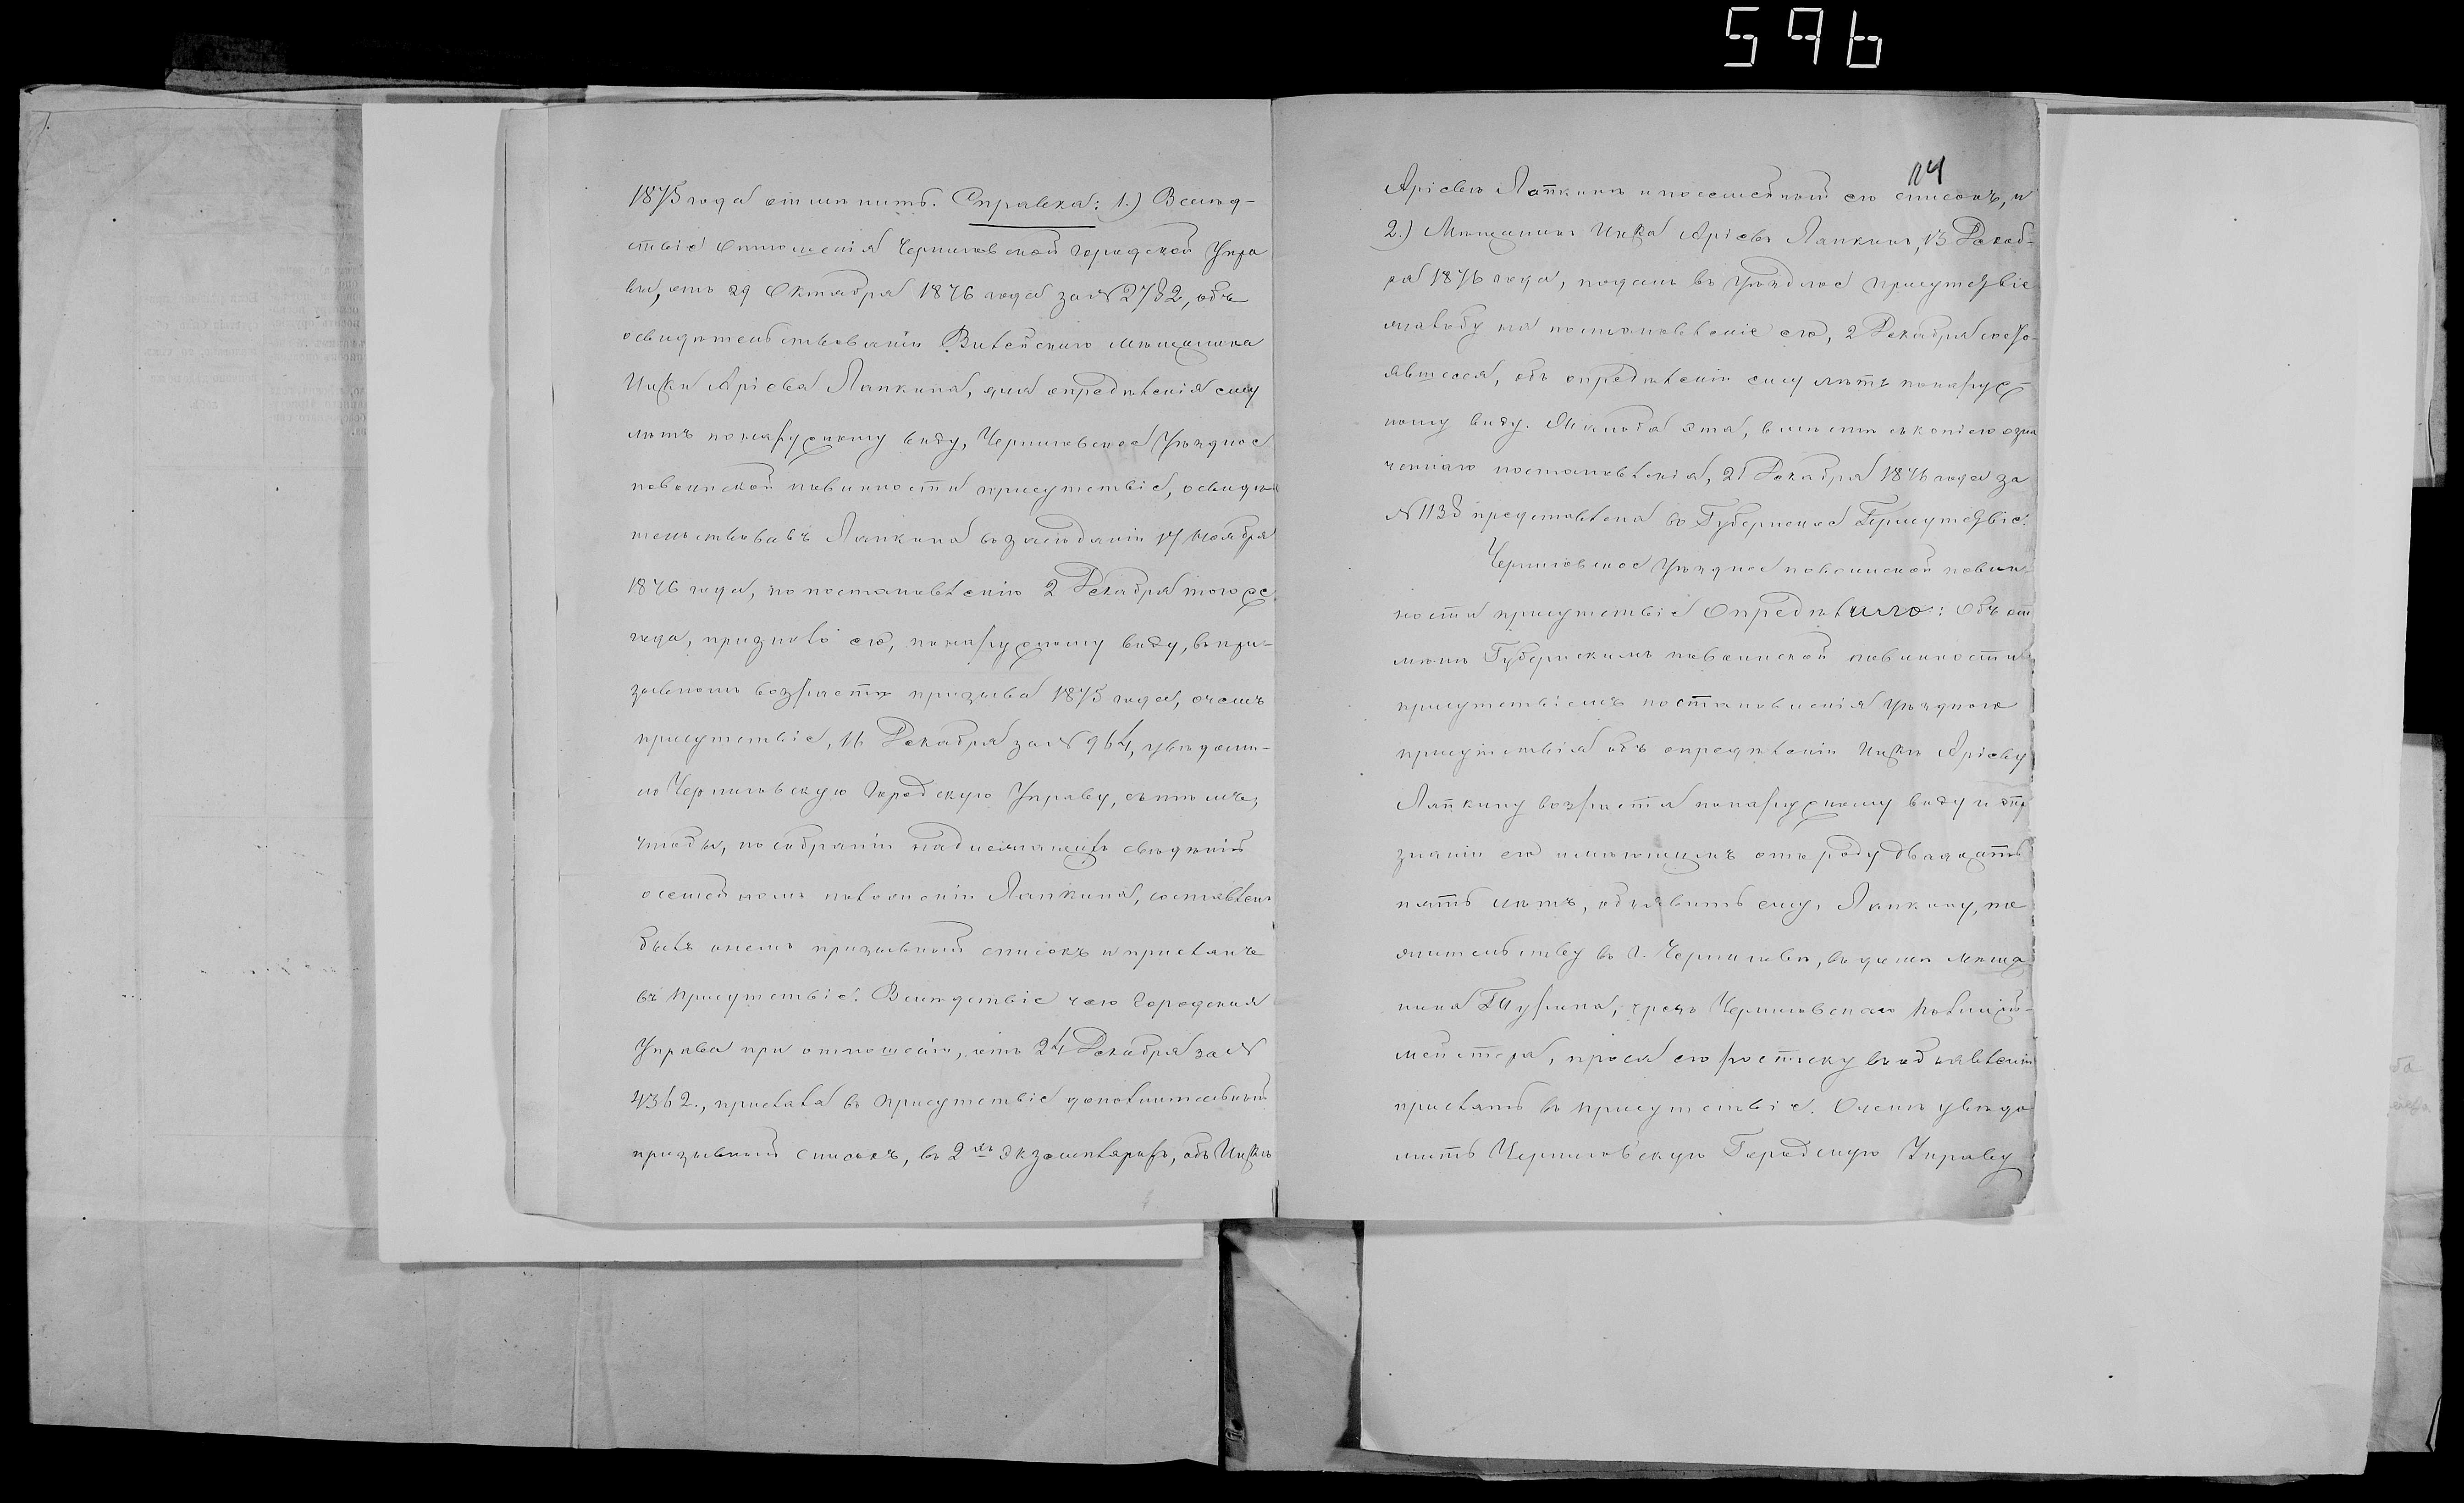 596
1875 года отмѣнить. Справка: 1.) Вслѣд-
ствіе отношенія Черниговской Городской Упра
вы, отъ 29 Октября 1876 года за № 2782, объ
освидѣтельствованіи Витебскаго мѣщанина
Ицки Аріева Лапкина, для опредѣленія ему
лѣтъ по наружному виду, Черниговское Уѣздное
по воинской повинности присутствіе, освидѣ
тельствовавъ Лапкина въ засѣданіи 17 Ноября
1876 года, по постановленію 2 Декабря того же
года, признало его, по наружному виду, въ при-
зывномъ возрастѣ призыва 1875 года, о чемъ
присутствіе, 16 Декабря за № 964, увѣдоми-
ло Черниговскую Городскую Управу, съ тѣмъ,
чтобы, по собраніи надлежащихъ свѣдѣній
о семейномъ положеніи Лапкина, составленъ
былъ о немъ призывной списокъ и присланъ
въ присутствіе. Вслѣдствіе чего Городская
Управа при отношеніи, отъ 24 Декабря за №
4362., прислала въ присутствіе дополнительный
призывной списокъ, въ 2хъ экземплярахъ, объ Ицкѣ
114
Аріевѣ Лапкинѣ и посемейный его списокъ, и
2.) Мѣщанинъ Ицка Аріевъ Лапкинъ, 13 Декаб-
ря 1876 года, подалъ въ Уѣздное присутствіе
жалобу на постановленіе его, 2 Декабря состо-
явшееся, объ опредѣленіи ему лѣтъ по наруж-
ному виду. Жалоба эта, вмѣстѣ съ копіею озна
ченнаго постановленія, 21 Декабря 1876 года за
№ 1138 представлена въ Губернское Присутствіе.
Черниговское Уѣздное по воинской повин-
ности присутствіе Опредѣлило: Объ от
мѣнѣ Губернскимъ по воинской повинности
присутствіемъ постановленія Уѣзднаго
присутствія объ опредѣленіи Ицкѣ Аріеву
Лапкину возраста по наружному виду и о при
знаніи его имѣющимъ отъ роду двадцать
пять лѣтъ, объявить ему, Лапкину, по
жительству въ г. Черниговѣ, въ домѣ мѣща
нина чрезъ Черниговскаго Полицій-
мейстера, прося его росписку въ объявленіи
прислать въ присутствіе. О чемъ увѣдо
мить Черниговскую Городскую Управу